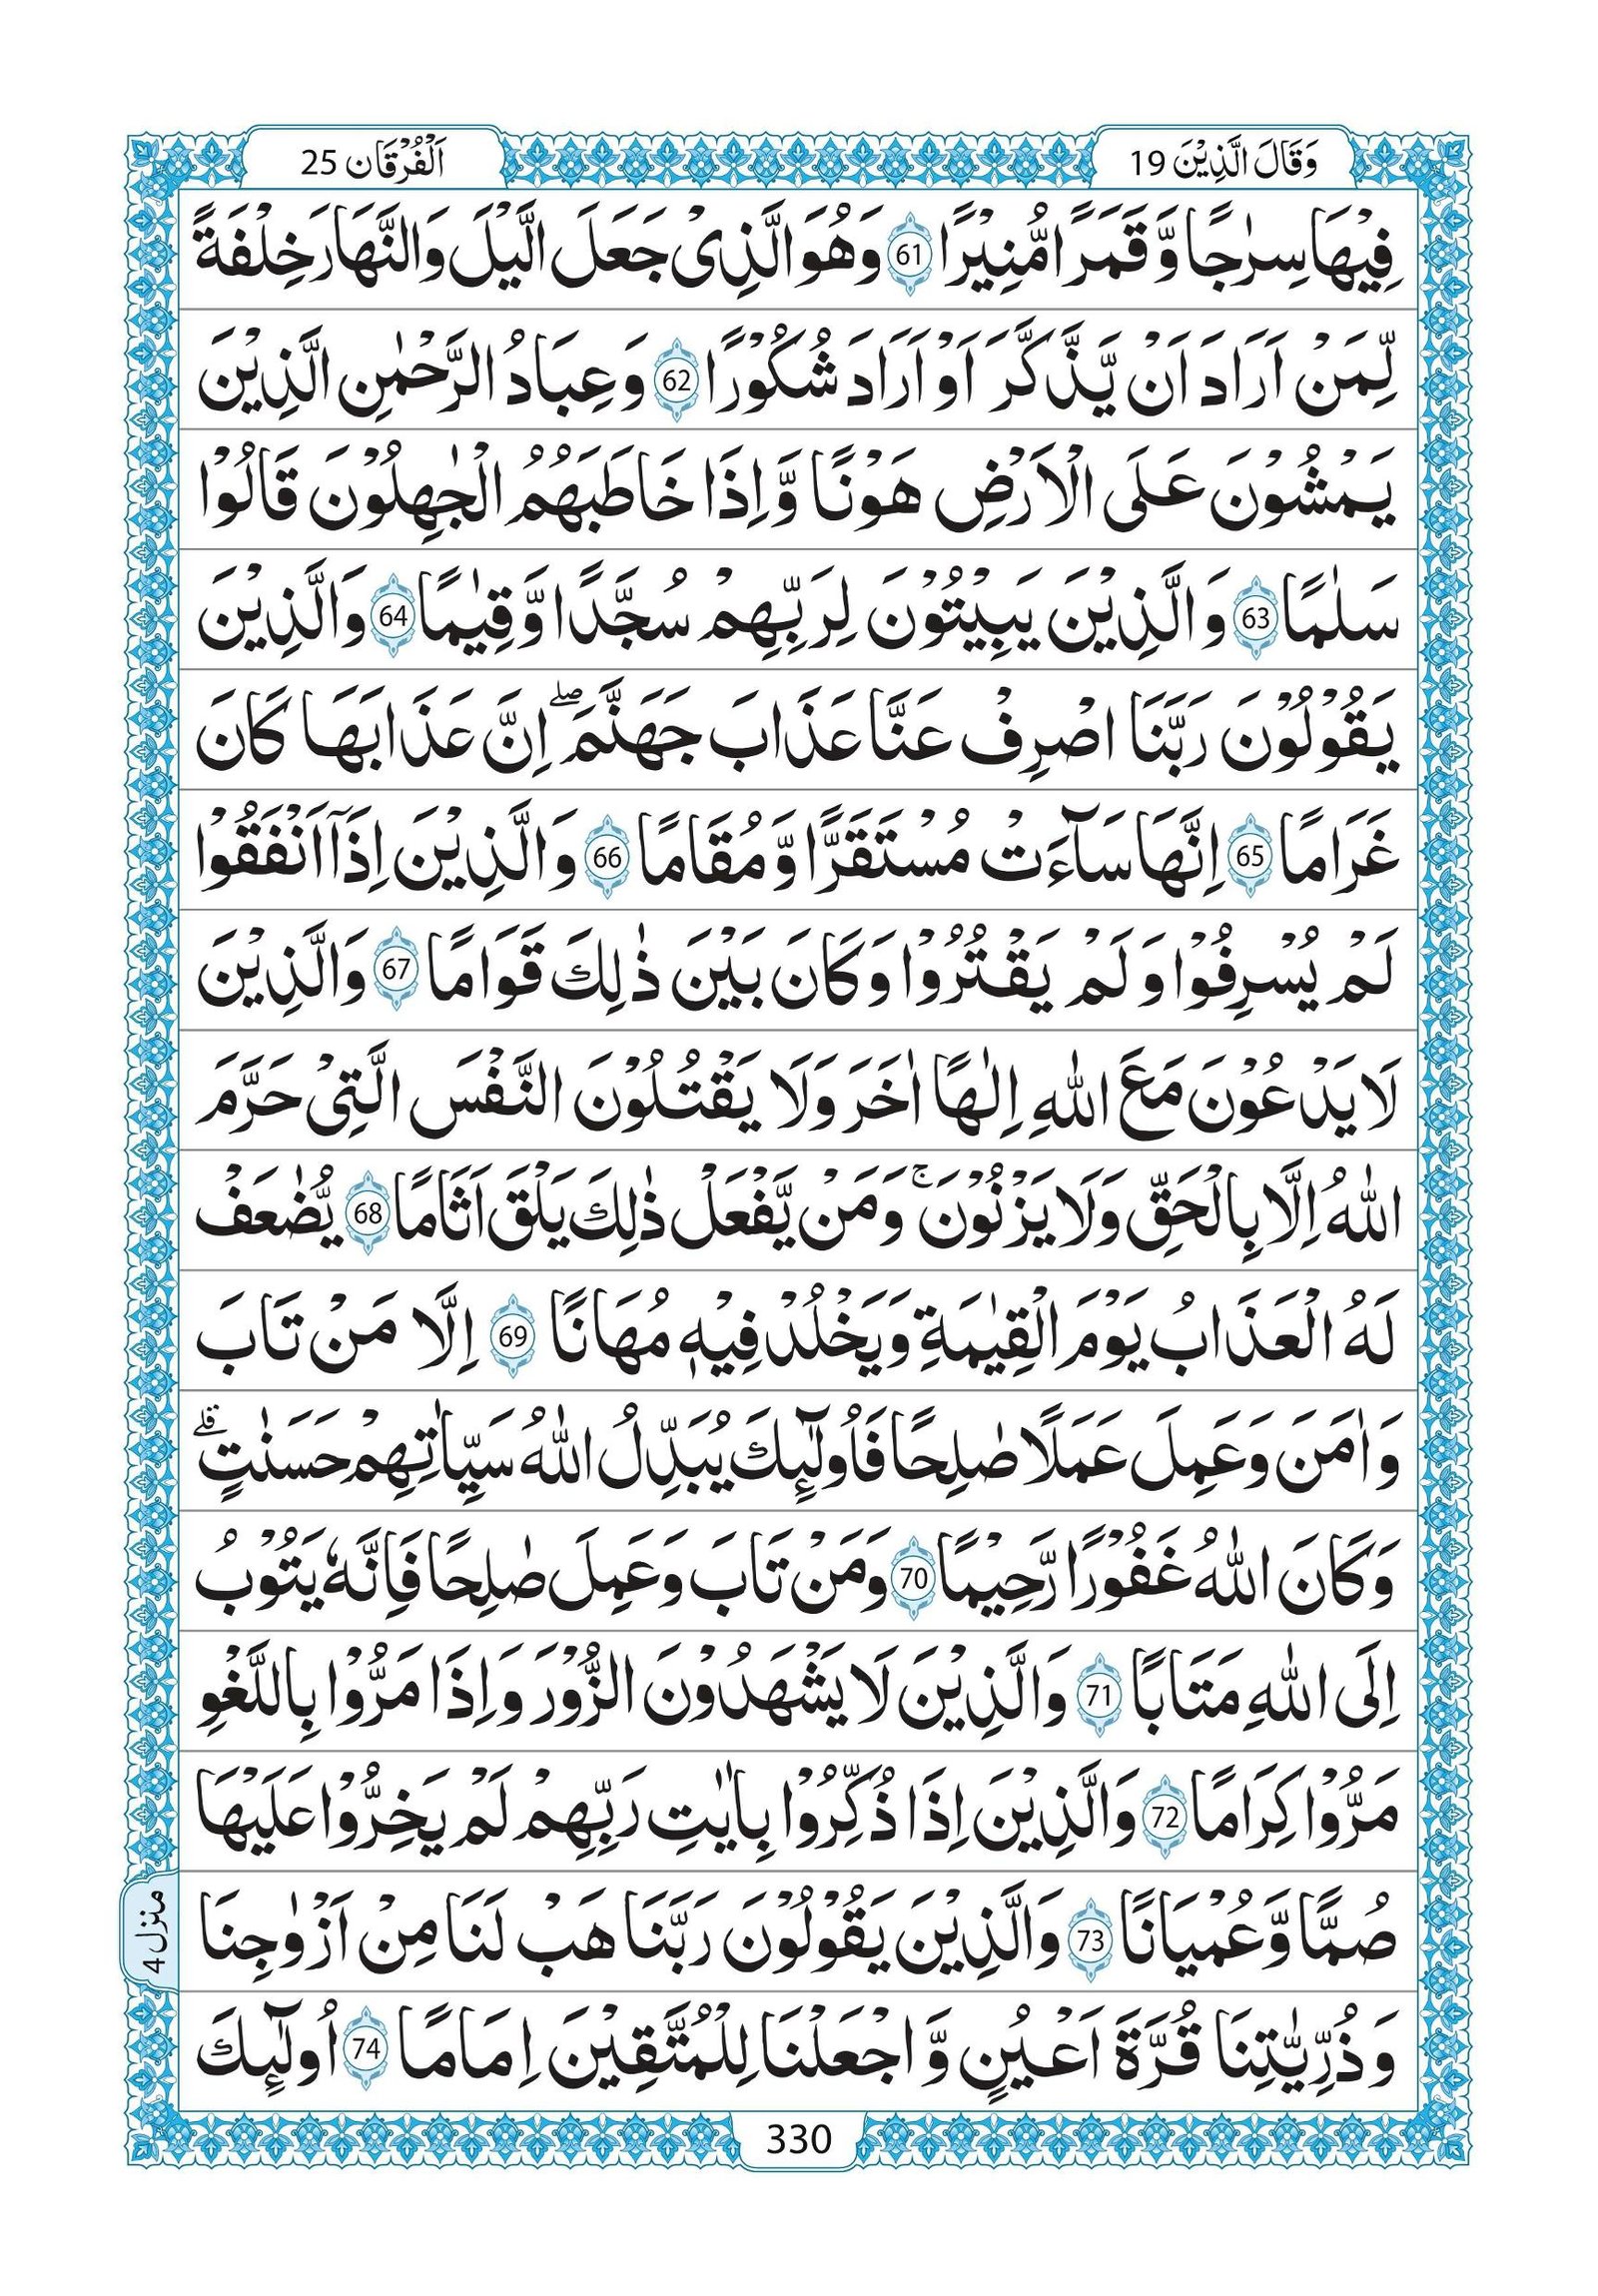 وَقَالَ الَّذِيْنَ 19
اَلْفُرْقَان 25
فِيْهَا سِرٰجًا وَّقَمَرًا مُّنِيْرًا 61 وَهُوَ الَّذِىْ جَعَلَ الَّيْلَ وَالنَّهَارَ خِلْفَةً
لِّمَنْ اَرَادَ اَنْ يَّذَّكَّرَ اَوْ اَرَادَ شُكُوْرًا 62 وَعِبَادُ الرَّحْمٰنِ الَّذِيْنَ
يَمْشُوْنَ عَلَى الْاَرْضِ هَوْنًا وَّاِذَا خَاطَبَهُمُ الْجٰهِلُوْنَ قَالُوْا
سَلٰمًا 63 وَالَّذِيْنَ يَبِيْتُوْنَ لِرَبِّهِمْ سُجَّدًا وَّقِيٰمًا 64 وَالَّذِيْنَ
يَقُوْلُوْنَ رَبَّنَا اصْرِفْ عَنَّا عَذَابَ جَهَنَّمَ ۖ اِنَّ عَذَابَهَا كَانَ
غَرَامًا 65 اِنَّهَا سَآءَتْ مُسْتَقَرًّا وَّمُقَامًا 66 وَالَّذِيْنَ اِذَآ اَنْفَقُوْا
لَمْ يُسْرِفُوْا وَلَمْ يَقْتُرُوْا وَكَانَ بَيْنَ ذٰلِكَ قَوَامًا 67 وَالَّذِيْنَ
لَا يَدْعُوْنَ مَعَ اللّٰهِ اِلٰهًا اٰخَرَ وَلَا يَقْتُلُوْنَ النَّفْسَ الَّتِىْ حَرَّمَ
اللّٰهُ اِلَّا بِالْحَقِّ وَلَا يَزْنُوْنَ ۚ وَمَنْ يَّفْعَلْ ذٰلِكَ يَلْقَ اَثَامًا 68 يُّضٰعَفْ
لَهُ الْعَذَابُ يَوْمَ الْقِيٰمَةِ وَيَخْلُدْ فِيْهٖ مُهَانًا 69 اِلَّا مَنْ تَابَ
وَاٰمَنَ وَعَمِلَ عَمَلًا صٰلِحًا فَاُولٰٓئِكَ يُبَدِّلُ اللّٰهُ سَيِّاٰتِهِمْ حَسَنٰتٍ ۗ
وَكَانَ اللّٰهُ غَفُوْرًا رَّحِيْمًا 70 وَمَنْ تَابَ وَعَمِلَ صٰلِحًا فَاِنَّهٗ يَتُوْبُ
اِلَى اللّٰهِ مَتَابًا 71 وَالَّذِيْنَ لَا يَشْهَدُوْنَ الزُّوْرَ وَاِذَا مَرُّوْا بِاللَّغْوِ
مَرُّوْا كِرَامًا 72 وَالَّذِيْنَ اِذَا ذُكِّرُوْا بِاٰيٰتِ رَبِّهِمْ لَمْ يَخِرُّوْا عَلَيْهَا
صُمًّا وَّعُمْيَانًا 73 وَالَّذِيْنَ يَقُوْلُوْنَ رَبَّنَا هَبْ لَنَا مِنْ اَزْوٰجِنَا
وَذُرِّيّٰتِنَا قُرَّةَ اَعْيُنٍ وَّاجْعَلْنَا لِلْمُتَّقِيْنَ اِمَامًا 74 اُولٰٓئِكَ
منزل 4
330